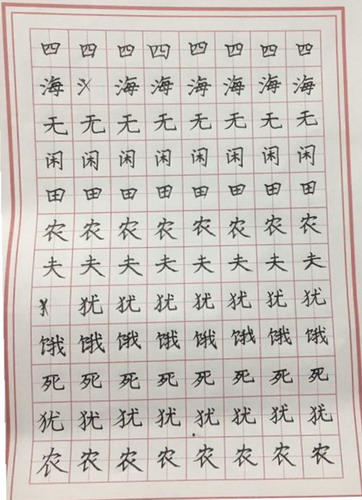 四四四四四四四四
海海海海海海海
无无无无无无无无
闲闲闲闲闲闲闲闲
田田田田田田田田
农农农农农农农农
夫夫夫夫夫夫夫夫
犹犹犹犹犹犹犹
饿饿饿饿饿饿饿饿
死死死死死死死死
犹犹犹犹犹犹犹犹
农农农农农农农农